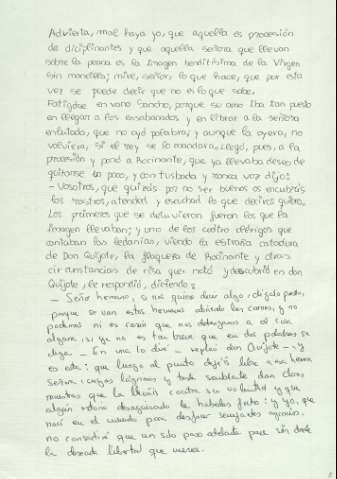 Advierta, mal haya yo, que aquella es procesión
de diciplinantes y que aquella señora que llevan
sobre la peana es la imagen benditísima de la Virgen
sin mancilla; mire, señor, lo que hace, que por esta
vez se puede decir que no es lo que sabe.
Fatigóse en vano Sancho, porque su amo iba tan puesto
en llegar a los ensabanados y en librar a la señora
enlutada, que no oyó palabra; y aunque la oyera, no
volviera, si el rey se lo mandara. Llegó, pues, a la
procesión y paró a Rocinante, que ya llevaba deseo de
quitarse un poco, y con turbada y ronca voz dijo:
- Vosotros, que quizás por no ser buenos os encubrís
los rostros, atended y escuchad lo que deciros quiero.
Los primeros que se detuvieron fueron los que la
imagen llevaban; y uno de los cuatro clérigos que
cantaban las ledanías, viendo la estraña catadura
de Don Quijote, la flaqueza de Rocinante y otras
circunstancias de risa que notó y descubrió en don
Quijote, le respondió, diciendo:
- Señor hermano, si nos quiere decir algo, dígalo presto,
porque se van estos hermanos abriendo las carnes, y no
podemos ni es razón que nos detengamos a oír cosa
alguna, si ya no es tan breve que en dos palabras se
diga. - En una lo diré - replicó don Quijote -, y
es esta: que luego al punto dejéis libre a esa hermosa
señora, cuyas lágrimas y triste semblante dan claras
muestras que la lleváis contra su voluntad y que
algún notorio desaguisado le habedes fecho; y yo, que
nací en el mundo para desfacer semejantes agravios,
no consentiré que un solo paso adelante pase sin darle
la deseada libertad que merece.